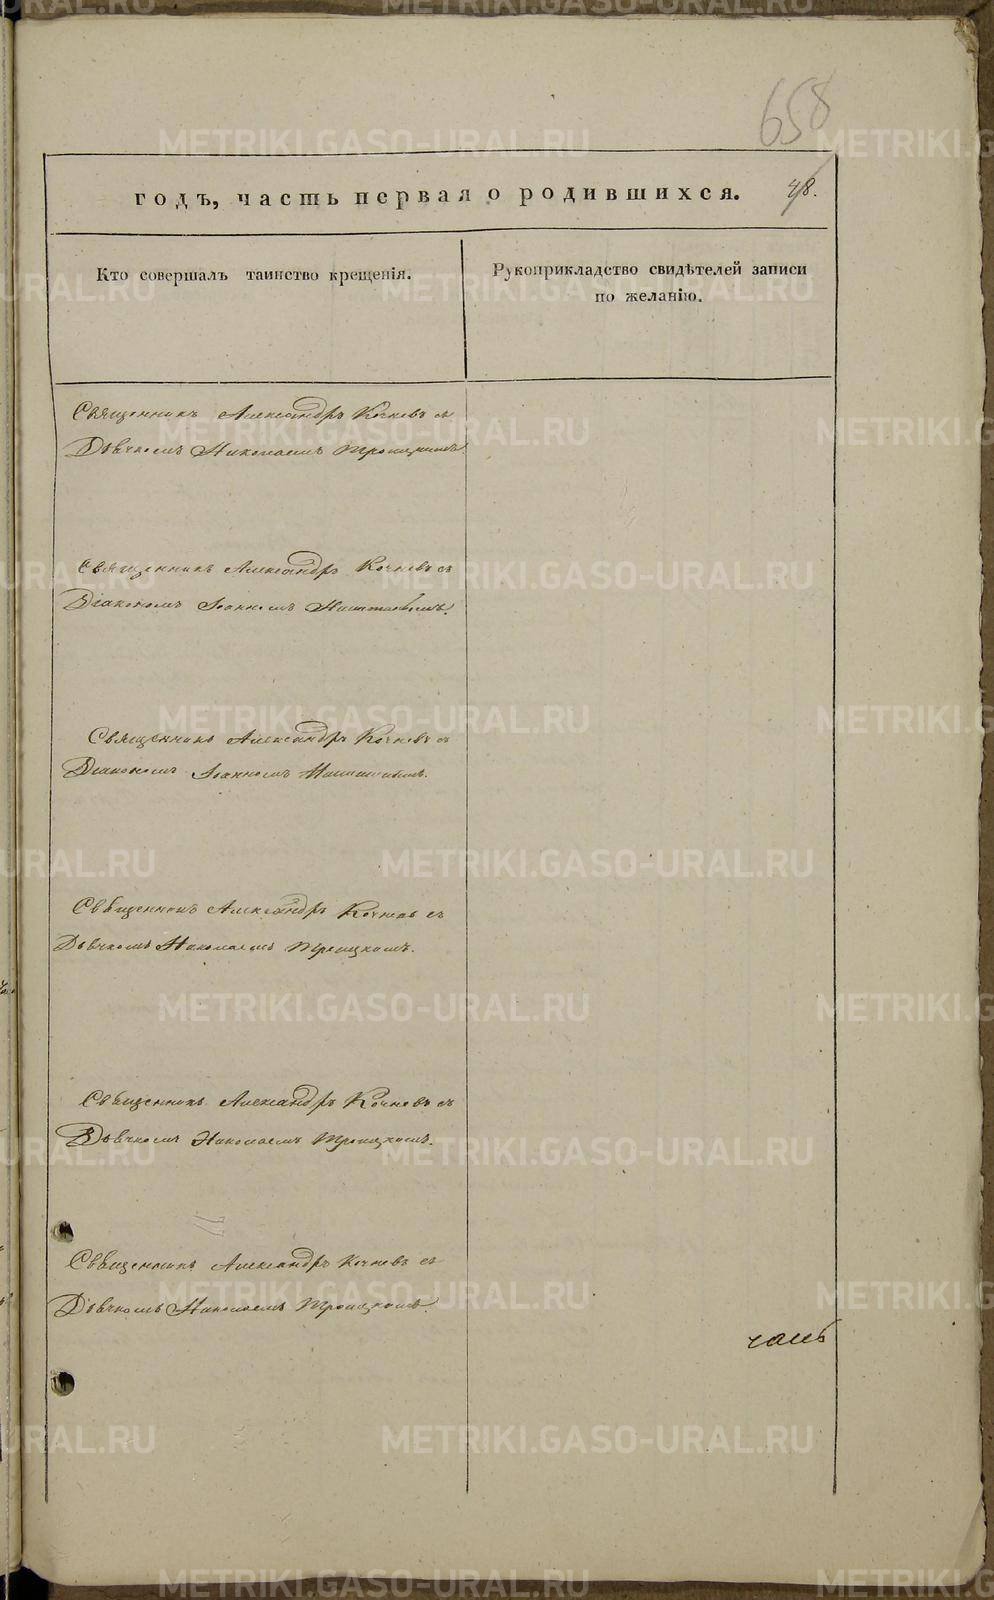 658
годъ, часть первая о родившихся.
48.
Кто совершалъ таинство крещенія.
Рукоприкладство свидѣтелей записи
по желанію.
Священникъ Александръ Кочневъ съ
Дьячкомъ Николаемъ Троицкимъ.
Священникъ Александръ Кочневъ съ
Діакономъ Іоанномъ
Священникъ Александръ Кочневъ съ
Діакономъ Іоанномъ
Священникъ Александръ Кочневъ съ
Дьячкомъ Николаемъ Троицкимъ.
Священникъ Александръ Кочневъ съ
Дьячкомъ Николаемъ Троицкимъ.
Священникъ Александръ Кочневъ съ
Дьячкомъ Николаемъ Троицкимъ.
METRIKI.GASO-URAL.RU